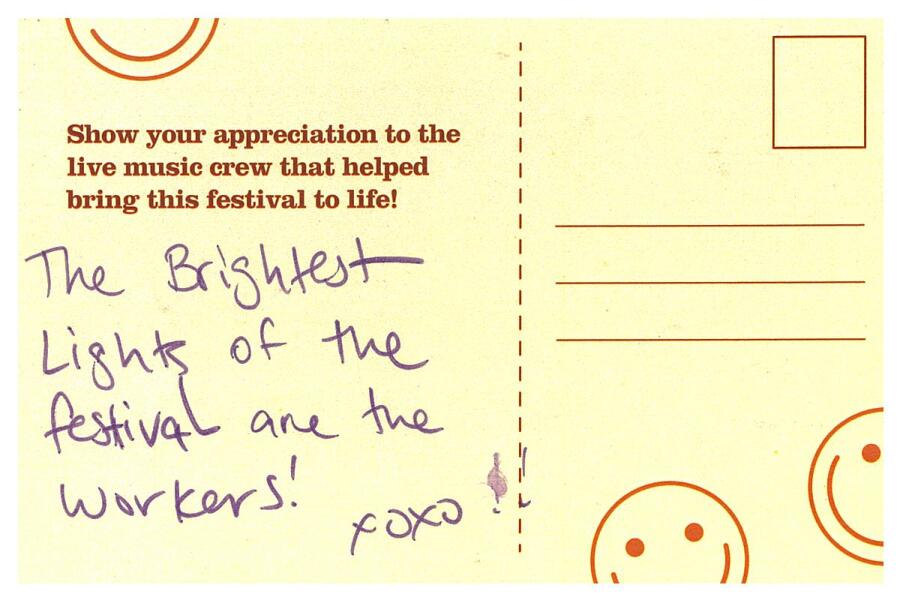 Show your appreciation to the
live music crew that helped
bring this festival to life!
The Brightest
Lights of the
festival are the
workers!
xoxo !!